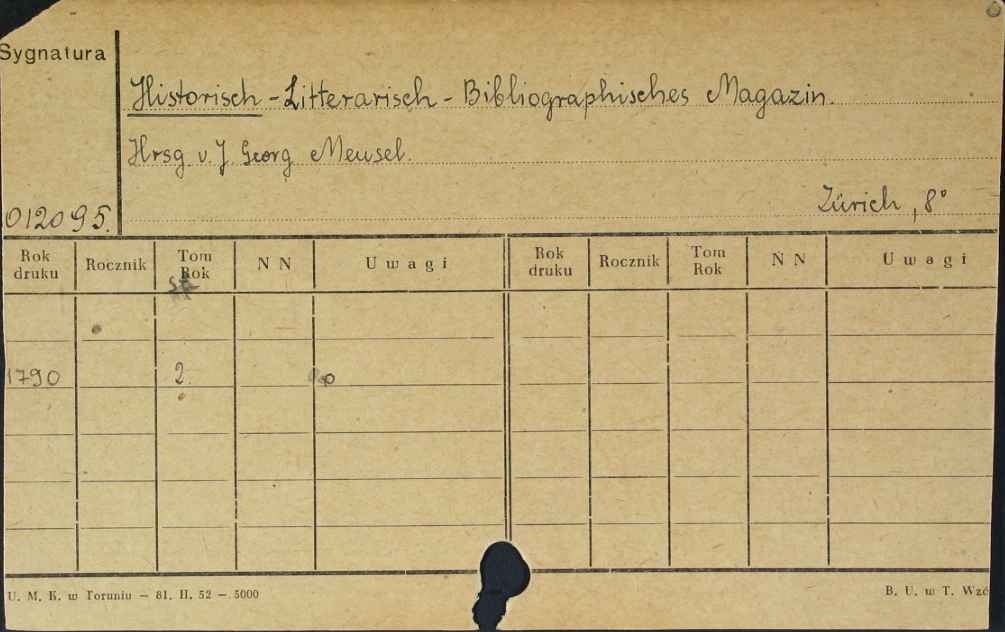 Sygnatura
Historisch - Litterarisch - Bibliographisches Magazin.
Hrsg v. J. Georg Meusel.
Zürich, 8°
012095.
Rok druku Rocznik Tom Rok N N Uwagi Rok druku Rocznik Tom Rok N N Uwagi
1790 2.
U. M. K. w Toruniu — 81. II. 52 — 5000 B. U. w T. Wzó